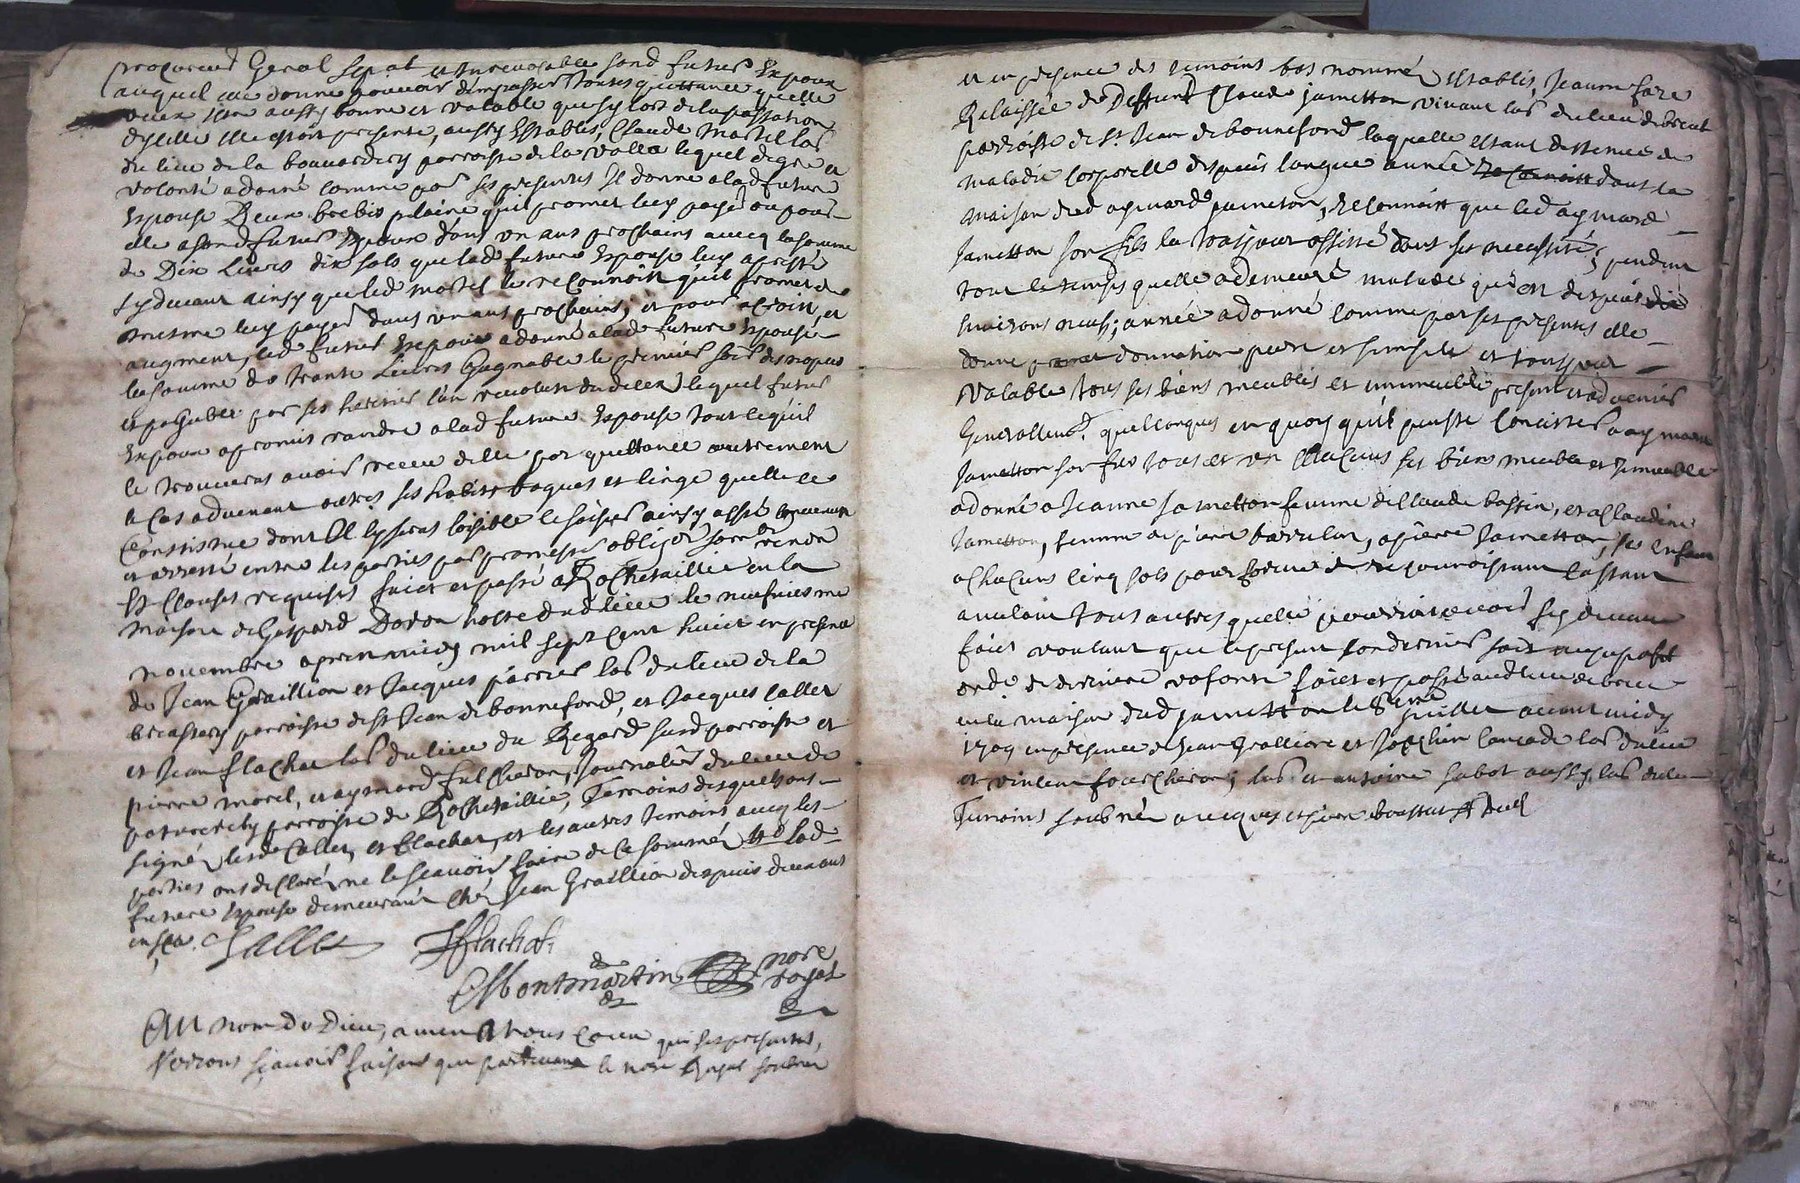 procureur Geral spial et Irrevocable sond futur Expoux
auquel elle donne pouvoir den passer toutes quittance quelle
veux Estre aussy bonne et valable que sy lors de la passation
dycelle elle estoit presente, aussy Establis, Claude Matel lab
du lieu de la parroisse de la valla lequel de gré et
volonté a donné comme par ses presentes Il donne a lad future
Espouse Deux brebis plaine quil promet luy payer ou pour
elle a sond futur Expoux dans un ans prochains avecq la somme
de Dix Livres dix sols que lad future Espouse luy a presté
cydevant ainsy que led Matel le reconnoit quil promet de
mesme luy payer dans un ans prochains, et pour acroit, et
augment, led futur Expoux a donné a lad future Espouse
la somme de trante Livres Gagnable le premier soir des nopces
et payable par ses heritiers l'an revolut du deces lequel futur
Expoux a promis randre a lad future Espouse tout le quil
se trouveras avoir receu delle par quittance autrement
le cas advenant outres ses habits bagues et linge quelle se
Constistue dont Il lysseras loisible le saisir ainsy a esté convenu
et arresté entre les parties par promesses obligon
Et Clauses requises faict et passé a Rochetaillie en la
maison de Gaspard Doron hoste dud lieu le neufviesme
novembre apres midy mil sept cent huict en presence
de Jean Graillion et Jacques lab du lieu de la
parroisse de St Jean de bonnefond, et Jacques Callet
et Jean flachat lab du lieu du Regard susd parroisse et
pierre morel, et aymard fulcheron, Journalier du lieu de
parroisse de Rochetaillie, Temoins desquels ont
signé lesd Callet, et flachat, et les autres temoins avecq les
parties ont declaré ne le scavoir faire de ce sommé lad
future Espouse demeurant chés Jean Graillion despuis deux ans
Callet Flachat
Montmartin nore
royal
Au nom de Dieu, amen A tous Ceux qui ses presentes,
Verront sçavoir faisons que pardevant le nore Royal soubné
et en presence des temoins bas nommé establis, Jeanne faze
Relaissée de Deffunt Claude Jametton vivant lab du lieu de
parroisse de St Jean de bonnefond laquelle estant destenue de
maladie Corporelle despuis longue année dans la
maison dud aymard Jameton, Reconnoitt que led aymard
Jametton son fils la tousjour assisté dans ses necessité, pendant
tout le temps quelle a demeuré malade quest despuis
environs neuf, année a donné comme par ses presentes elle
donne donnation pure et simple et tousjour
Valable tous ses biens meubles et immeuble present et advenir
Generallemt quelconques en quoy quils puisse Concister a aymard
Jametton son fils tous et un chacuns ses biens meuble et Immeuble
a donné a Jeanne Jametton femme de Claude bastin, et a Claudine
Jametton, femme a pierre, a pierre Jametton, ses enfans
a Chacuns Cinq sols
anulant tous autres quelle pourroit avoir sy devant
faict voulant que le present
de derniere volonté faict et passé aud lieu de
en la maison dud Jametton le 8eme Juillet avant midy
1709 en presence de Jean Gralliere et lab du lieu
et vincent fourcheron; lab et antoine sabot aussy lab du lieu
Temoins soubné